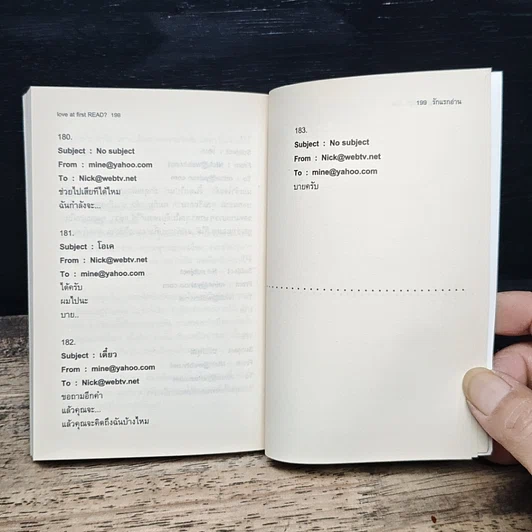 love at first READ? 198
180.
Subject : No subject
From : mine@yahoo.com
To : Nick@webtv.net
ช่วยไปเสียทีได้ไหม
ฉันกำลังจะ...
181.
Subject : โอเค
From : Nick@webtv.net
To : mine@yahoo.com
ได้ครับ
ผมไปนะ
บาย..
182.
Subject : เดี๋ยว
From : mine@yahoo.com
To : Nick@webtv.net
ขอถามอีกคำ
แล้วคุณจะ...
แล้วคุณจะคิดถึงฉันบ้างไหม
199 รักแรกอ่าน
183.
Subject : No subject
From : Nick@webtv.net
To : mine@yahoo.com
บายครับ